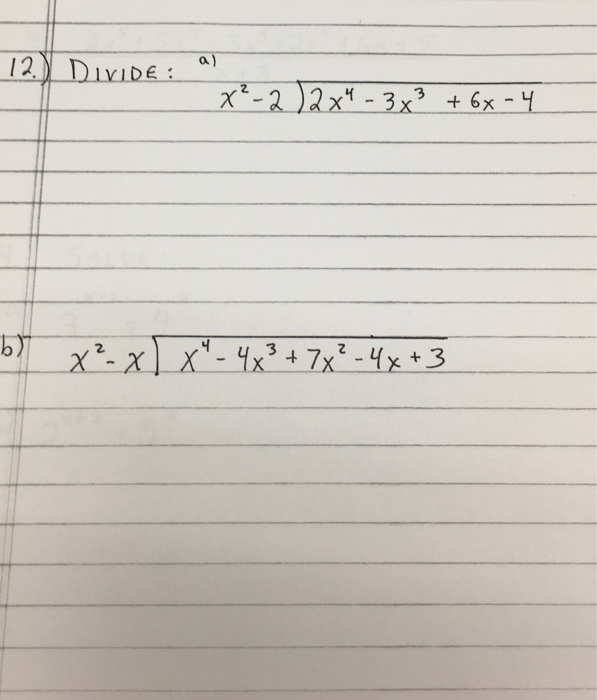 12.) DIVIDE: a)
x² - 2 ) 2x⁴ - 3x³ + 6x - 4
b) x² - x ) x⁴ - 4x³ + 7x² - 4x + 3